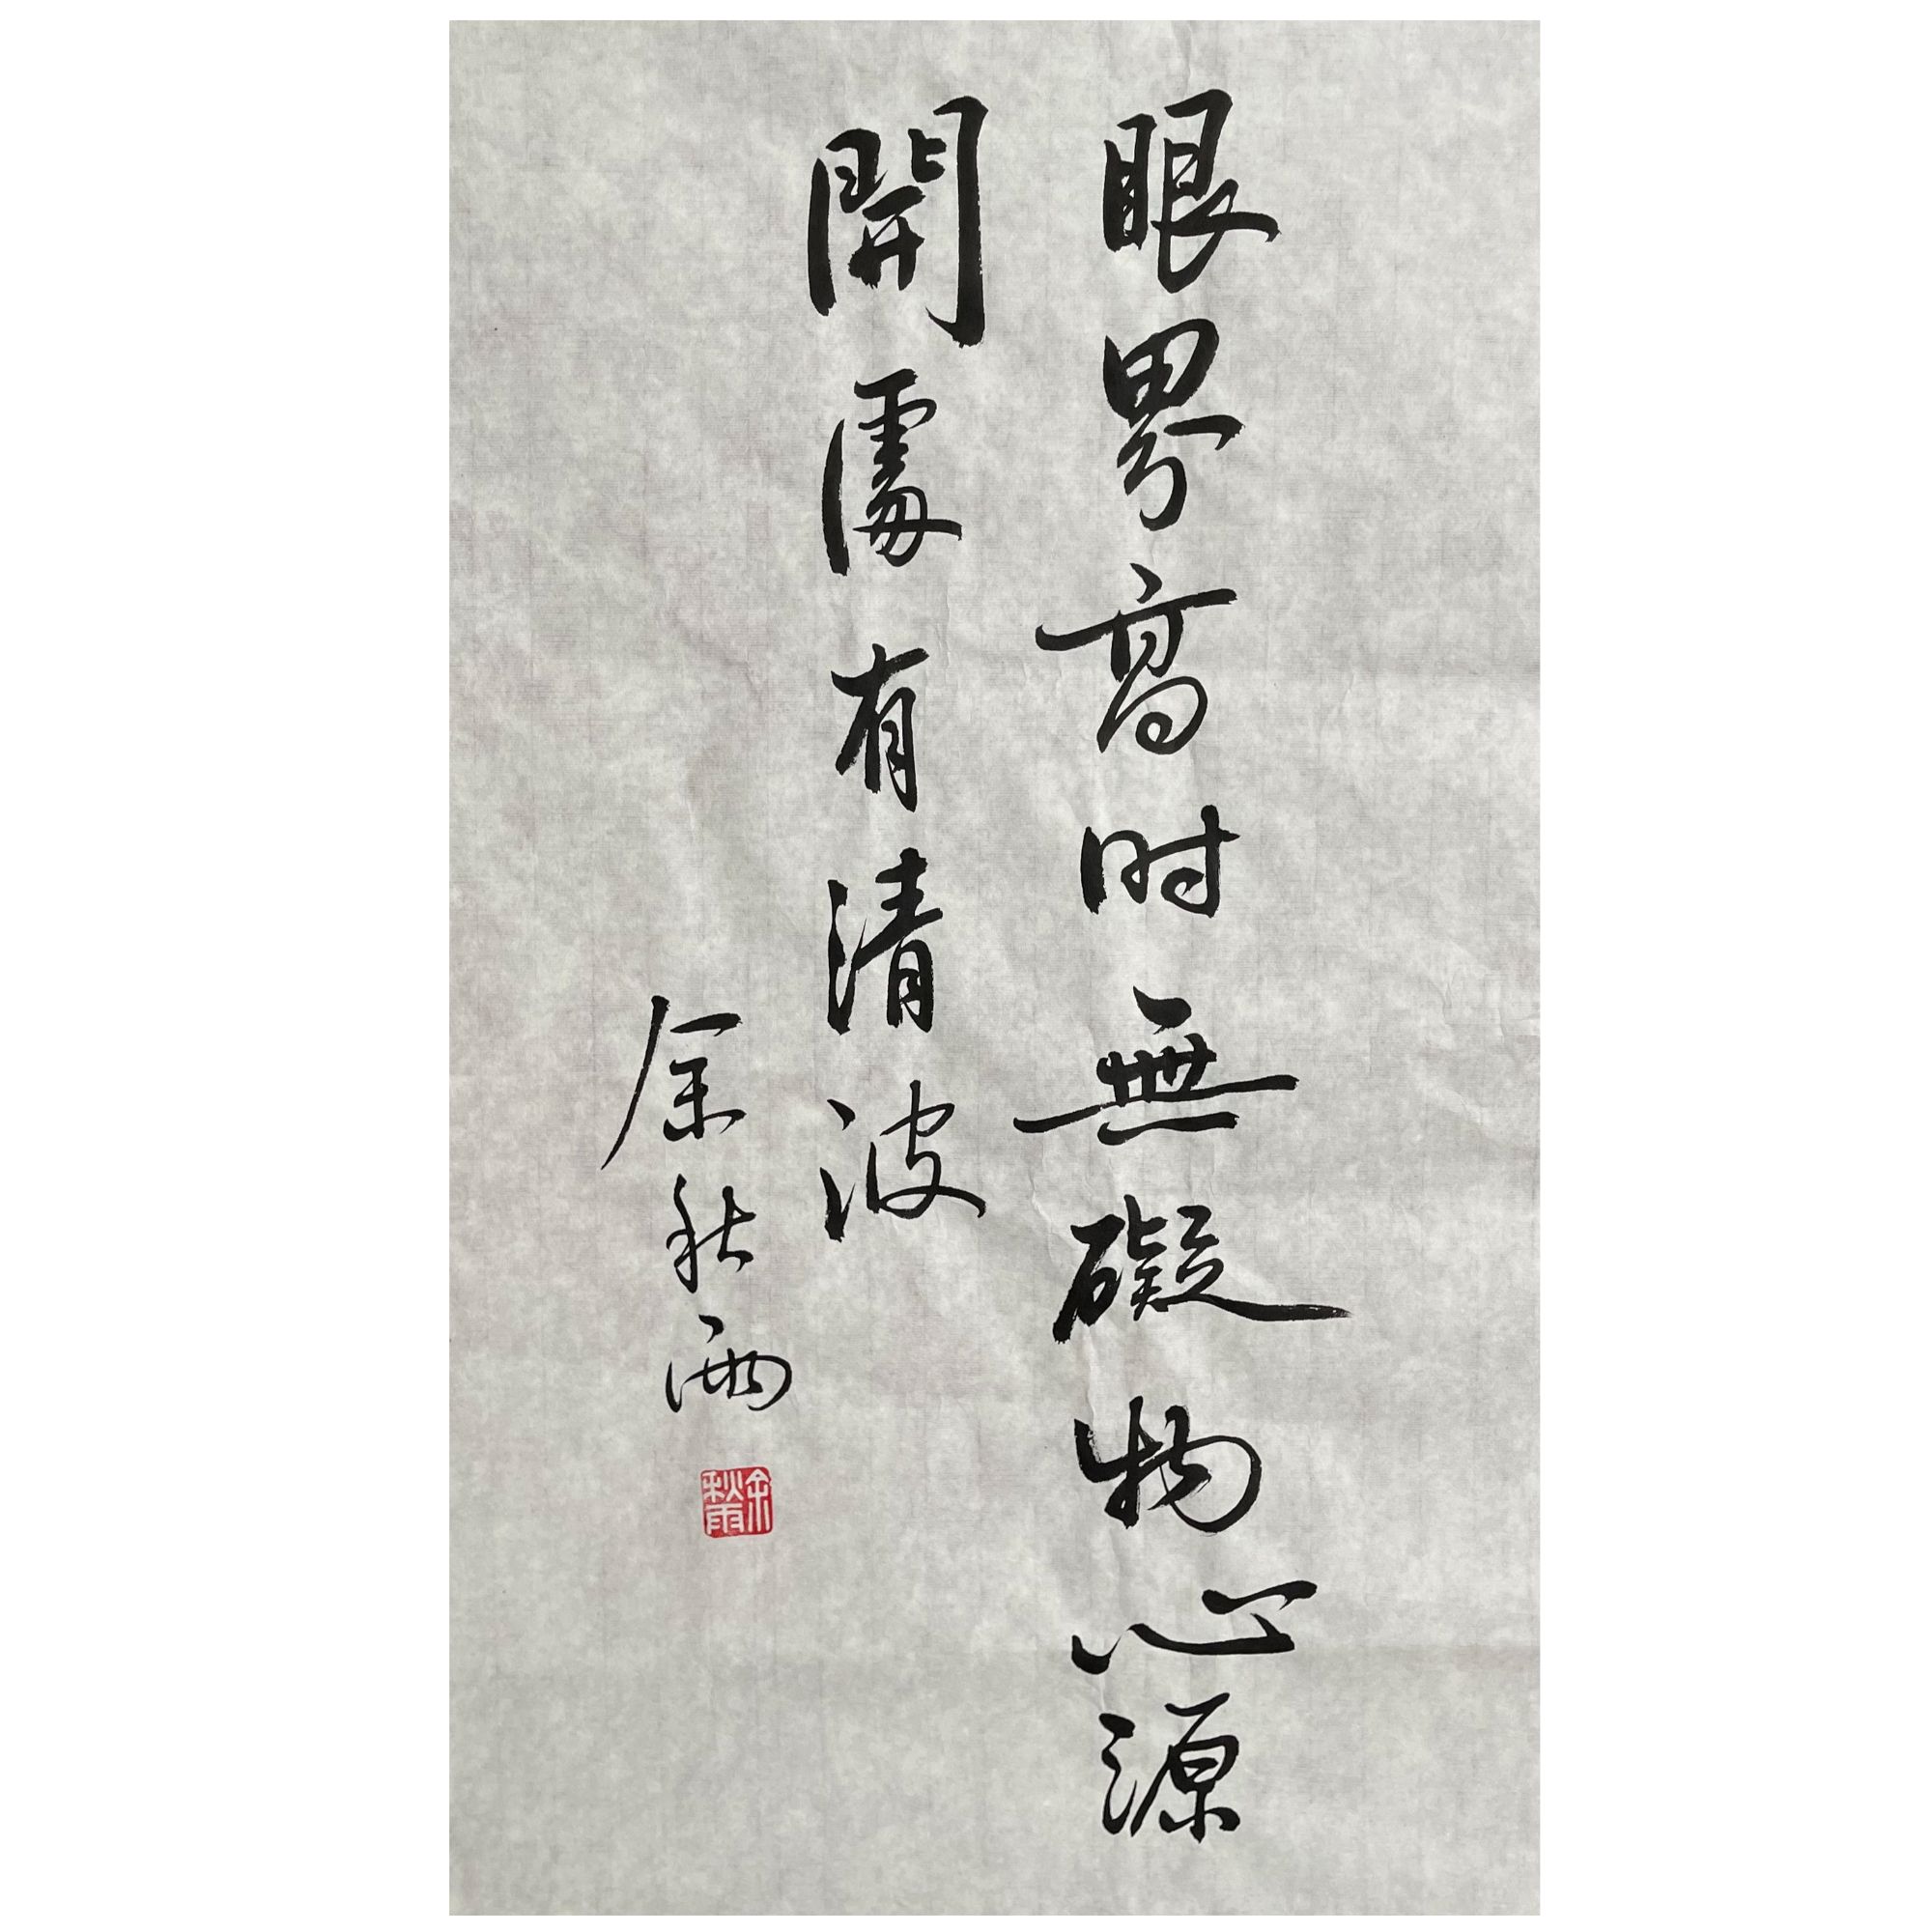 眼界高时無礙物心源
開處有清波
余秋雨
余秋雨